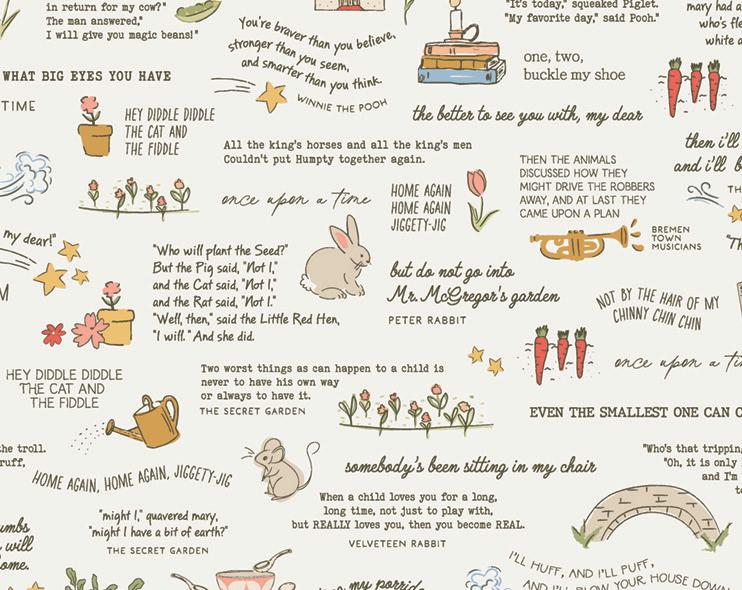 in return for my cow?"
The man answered,"
I will give you magic beans!"
You're braver than you believe,
stronger than you seem,
and smarter than you think.
WINNIE THE POOH
"It's today," squeaked Piglet.
"My favorite day," said Pooh."
mary had a
who's fle
white a
one, two,
buckle my shoe
WHAT BIG EYES YOU HAVE
TIME
HEY DIDDLE DIDDLE
THE CAT AND
THE FIDDLE
the better to see you with, my dear
All the king's horses and all the king's men
Couldn't put Humpty together again.
then i'll
and i'll b
THEN THE ANIMALS
DISCUSSED HOW THEY
MIGHT DRIVE THE ROBBERS
AWAY, AND AT LAST THEY
CAME UPON A PLAN
BREMEN
TOWN
MUSICIANS
once upon a time
HOME AGAIN
HOME AGAIN
JIGGETY-JIG
TH
"Th
my dear!"
M
"Who will plant the Seed?"
But the Pig said, "Not I,"
and the Cat said, "Not I."
and the Rat said, "Not I."
"Well, then," said the Little Red Hen,
"I will." And she did.
but do not go into
Mr. McGregor's garden
PETER RABBIT
NOT BY THE HAIR OF MY
CHINNY CHIN CHIN
once upon a ti
HEY DIDDLE DIDDLE
THE CAT AND
THE FIDDLE
Two worst things as can happen to a child is
never to have his own way
or always to have it.
THE SECRET GARDEN
EVEN THE SMALLEST ONE CAN C
the troll.
ruff,
HOME AGAIN, HOME AGAIN, JIGGETY-JIG
somebody's been sitting in my chair
"Who's that trippin
"Oh, it is only
and I'm
to
When a child loves you for a long,
long time, not just to play with,
but REALLY loves you, then you become REAL.
VELVETEEN RABBIT
umbs
will
ome.
"might I," quavered mary,
"might I have a bit of earth?"
THE SECRET GARDEN
I'LL HUFF, AND I'LL PUFF,
AND I'LL BLOW YOUR HOUSE DOWN
my porrid